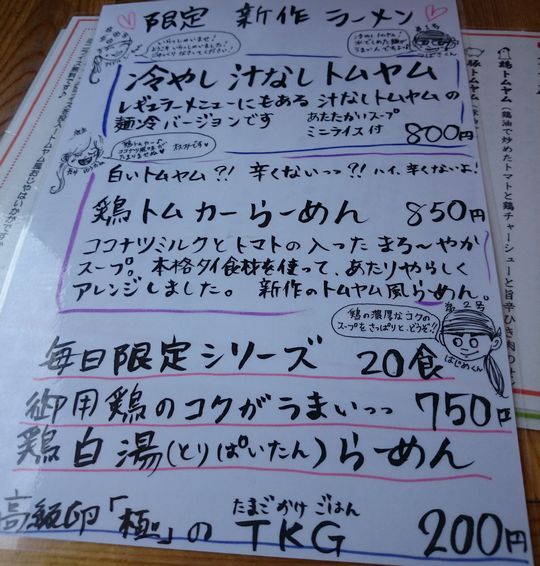 限定 新作 ラーメン
いらっしゃいませ！
冷やし汁なしトムヤム
レギュラーメニューにもある 汁なしトムヤムの
麺冷バージョンです
あたたかいスープ
ミニライス付
800円
白いトムヤム?! 辛くないっっ?! ハイ、辛くないよ!
鶏トムカーらーめん 850円
ココナツミルクとトマトの入った まろ〜やか
スープ。本格タイ食材を使って、あたりやらしく
アレンジしました。 新作のトムヤム風らーめん。
第2号
鶏の濃厚なコクの
スープをさっぱりと、どうぞ♪
はじめくん
毎日限定シリーズ 20食
御用鶏のコクがうまいっっ 750円
鶏白湯(とりぱいたん)らーめん
たまごかけごはん
高級卵「極」の TKG 200円
鶏トムヤム（鶏油で炒めたトマトと鶏チャーシューと旨辛ひき肉の
豚トムヤム